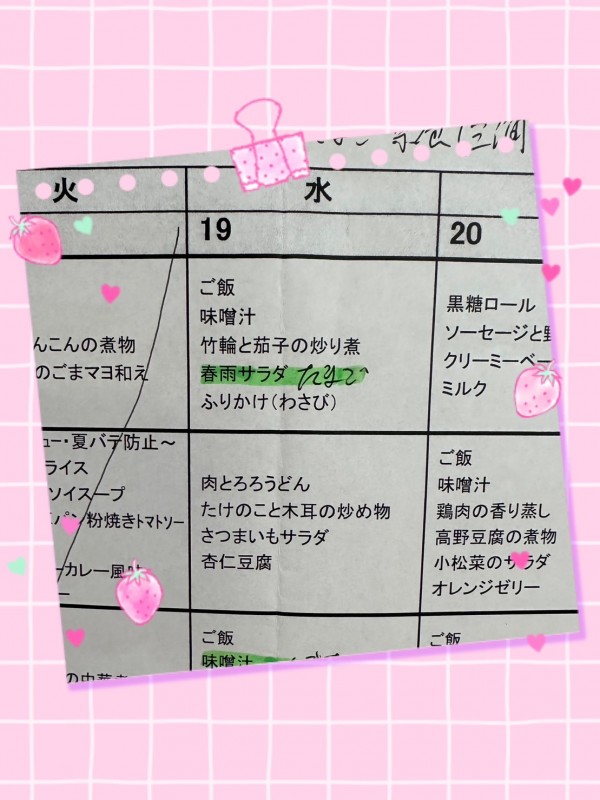 火
水
19
20
んこんの煮物
のごまマヨ和え
ご飯
味噌汁
竹輪と茄子の炒り煮
春雨サラダ たまご
ふりかけ(わさび)
黒糖ロール
ソーセージと
クリーミーベー
ミルク
ュー・夏バテ防止〜
ライス
ソイスープ
パン粉焼きトマトソー
カレー風味
ー
肉とろろうどん
たけのこと木耳の炒め物
さつまいもサラダ
杏仁豆腐
ご飯
味噌汁
鶏肉の香り蒸し
高野豆腐の煮物
小松菜のサラダ
オレンジゼリー
の中華
ご飯
味噌汁
ご飯